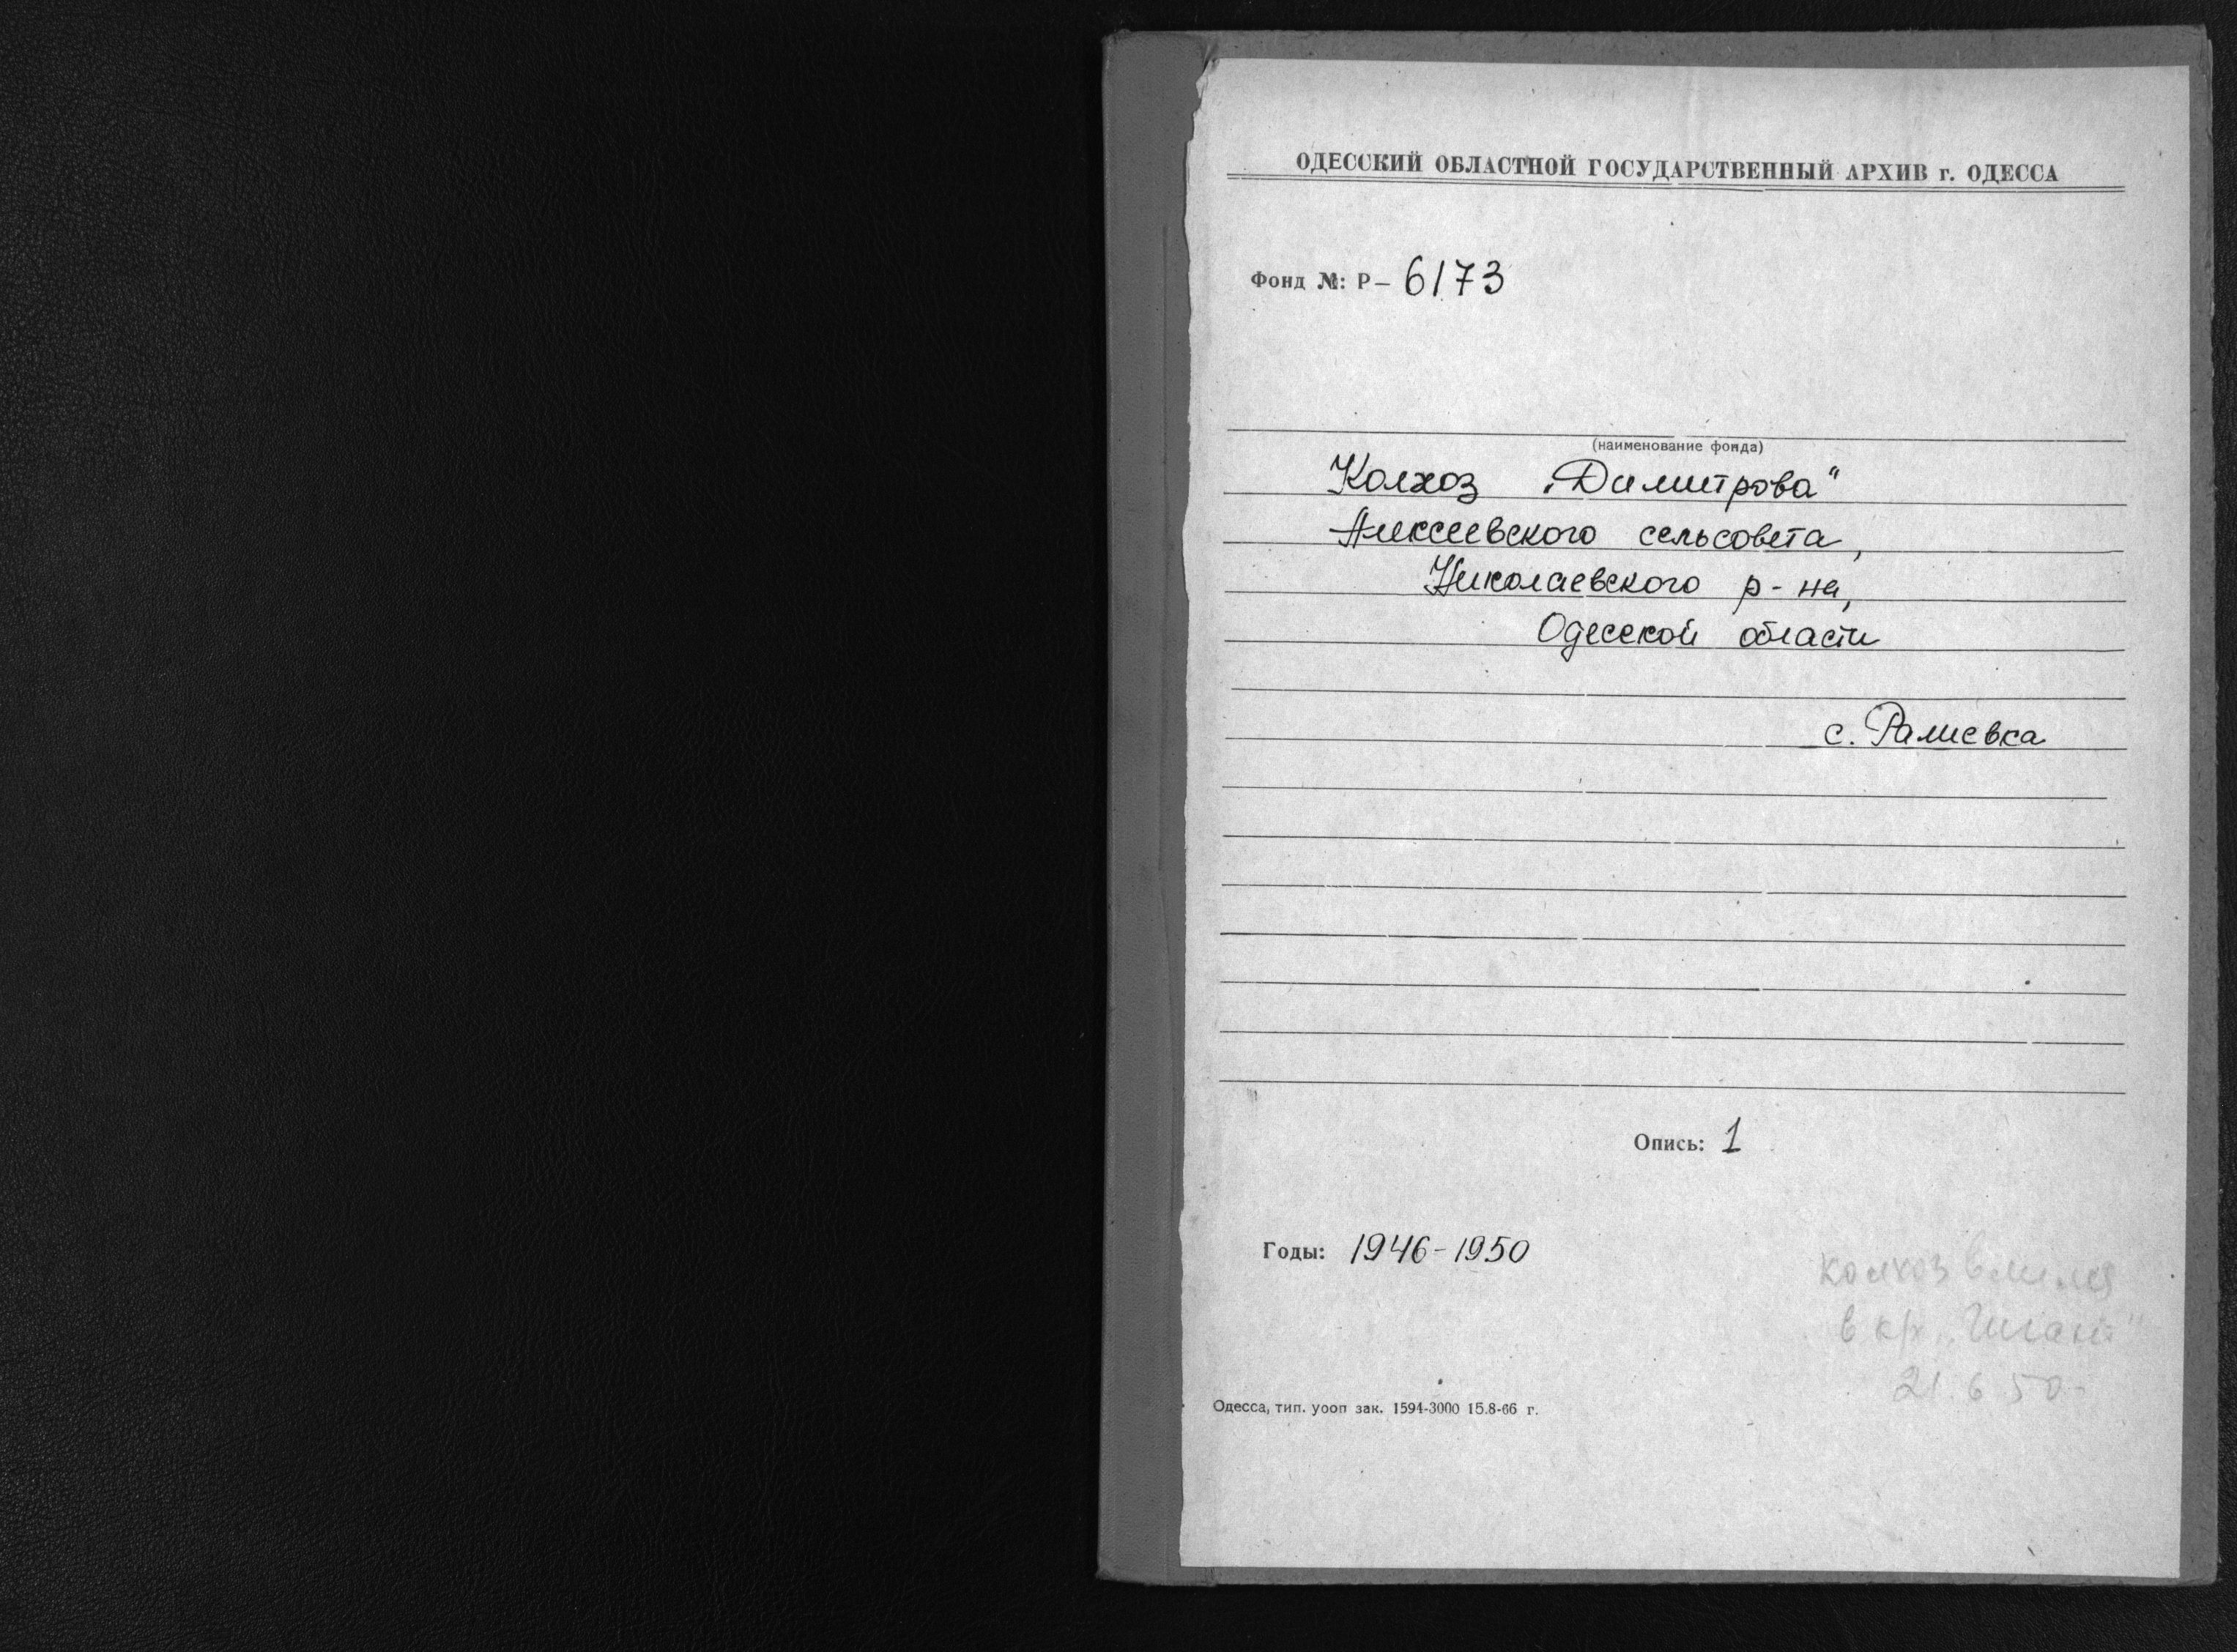 ОДЕССКИЙ ОБЛАСТНОЙ ГОСУДАРСТВЕННЫЙ АРХИВ г. ОДЕССА
Фонд №: Р— 6173
(наименование фонда)
Колхоз „Димитрова"
Алексеевского сельсовета,
Николаевского р-на,
Одесской области
с. Рамиевка
Опись: 1
Годы: 1946-1950
колхоз влился
в к/х „Гигант"
21.6.50.
Одесса, тип. уооп зак. 1594-3000 15.8-66 г.